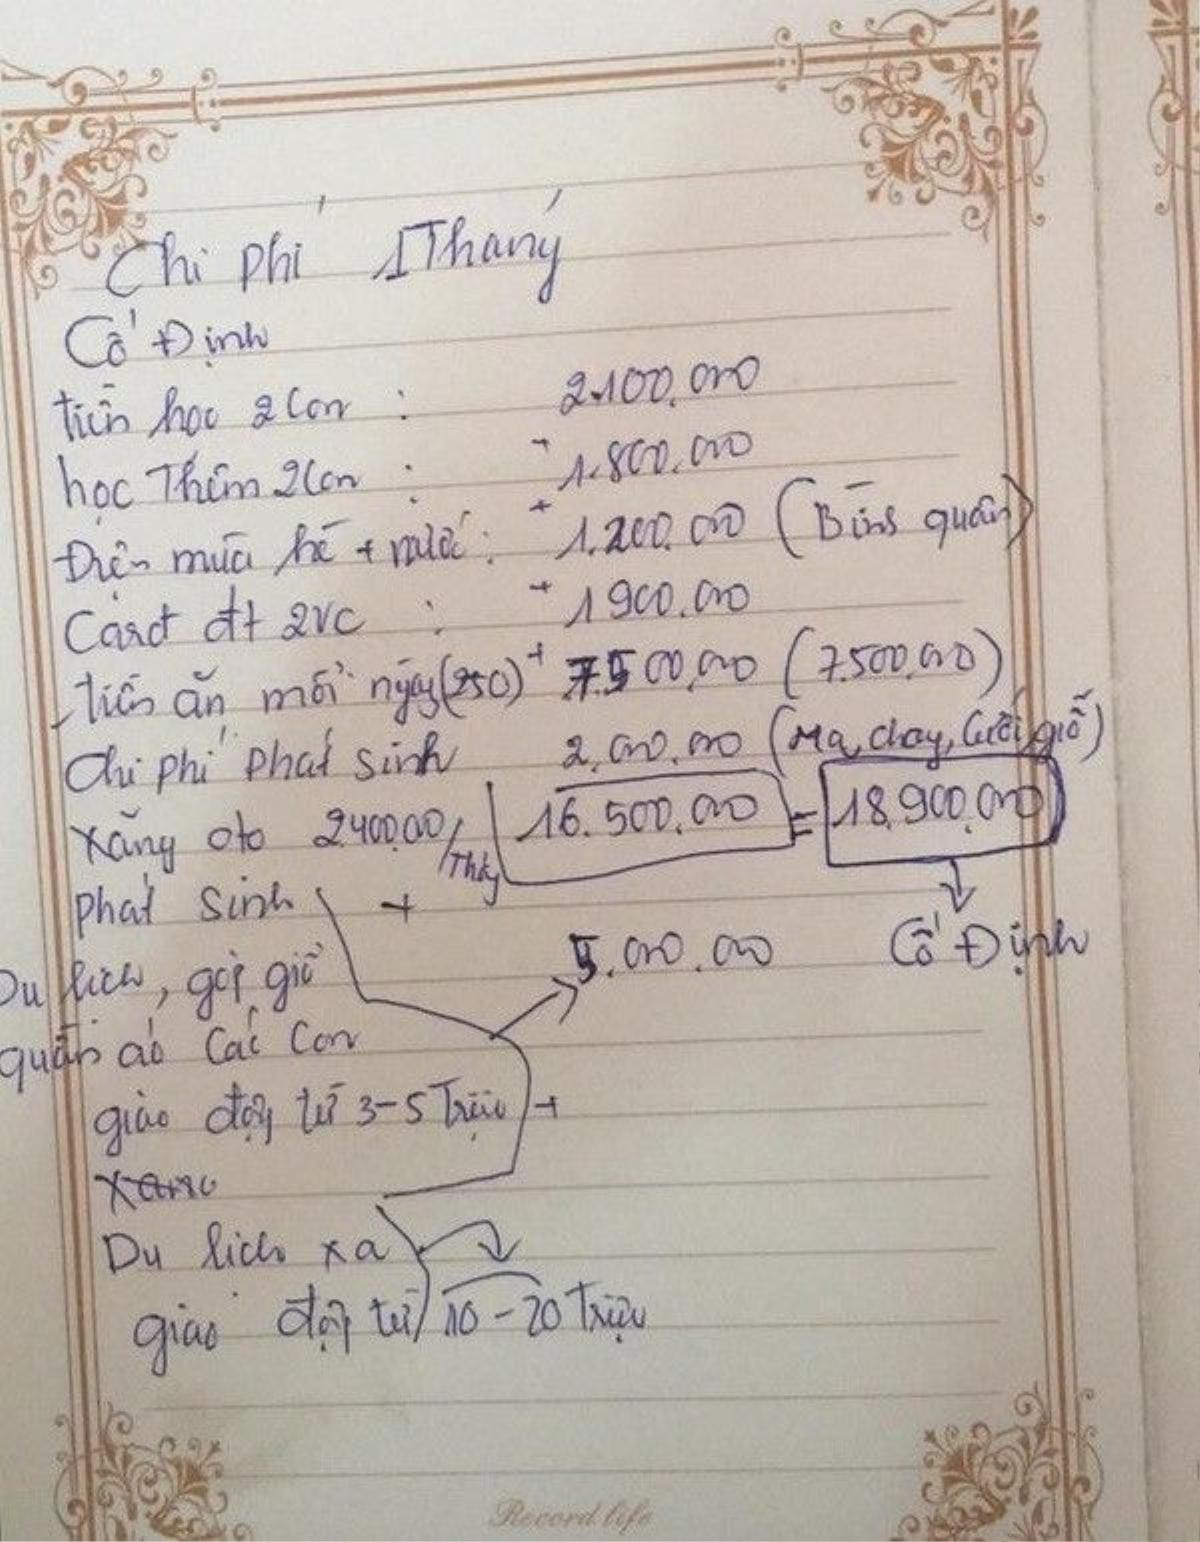 Chi phí 1 Tháng
Cố Định
tiền học 2 Con : 2.100.000
học Thêm 2 Con : + 1.800.000
Điện mùa hè + nước : + 1.200.000 (Bình quân)
Card đt 2VC : + 1 900.000
tiền ăn mỗi ngày (250) + 7.500.000 (7.500.000)
Chi phí phát sinh 2.000.000 (Ma chay, Cưới, giỗ)
Xăng oto 2.400.00/Tháng 16.500.000 = 18.900.000
phát sinh + Cố Định
Du lịch, góp giỗ 5.000.000
quần áo Các Con
giao động từ 3-5 Triệu +
Du lịch xa
giao động từ 10-20 Triệu
Record life